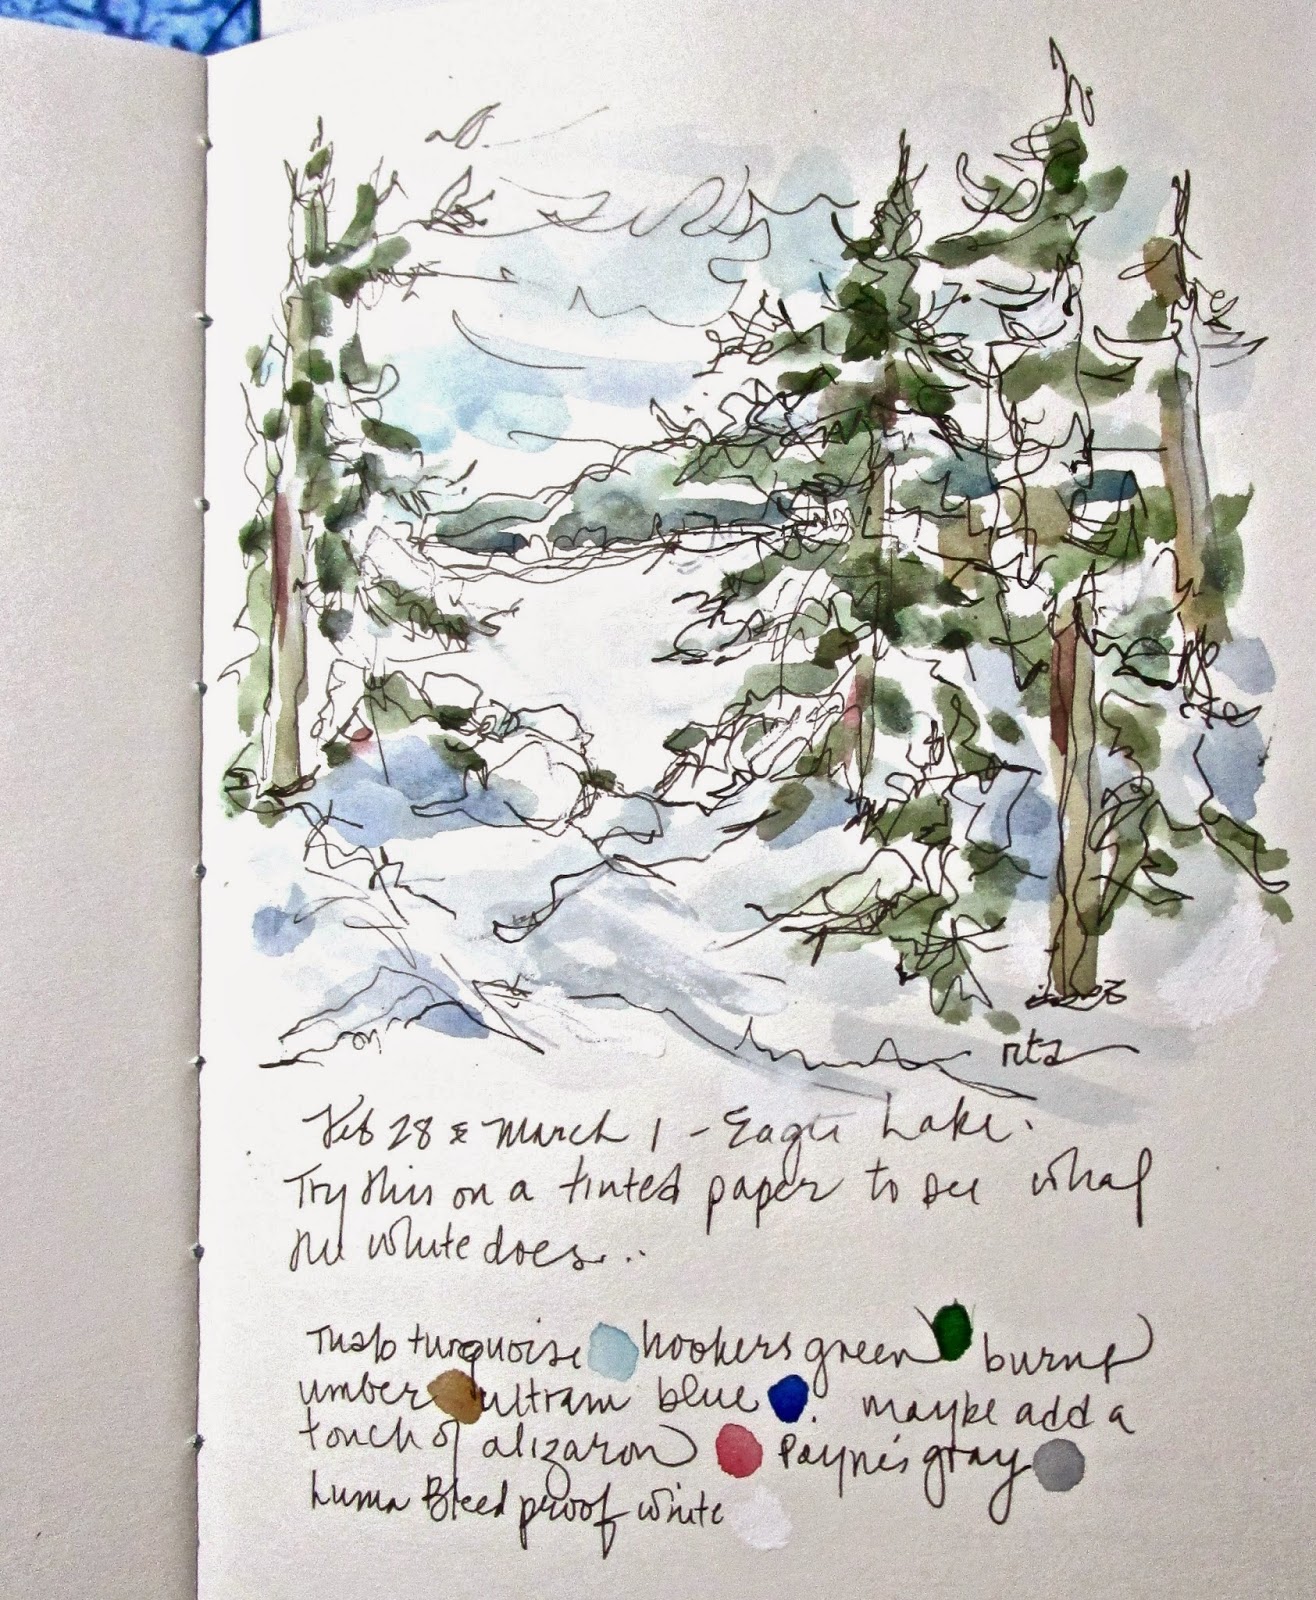 rtz
Feb 28 & March 1 - Eagle Lake.
Try this on a tinted paper to see what
the white does...
Thalo turquoise hookers green burnt
umber ultram blue. maybe add a
touch of alizaron Payne's gray
Luma Bleed proof white